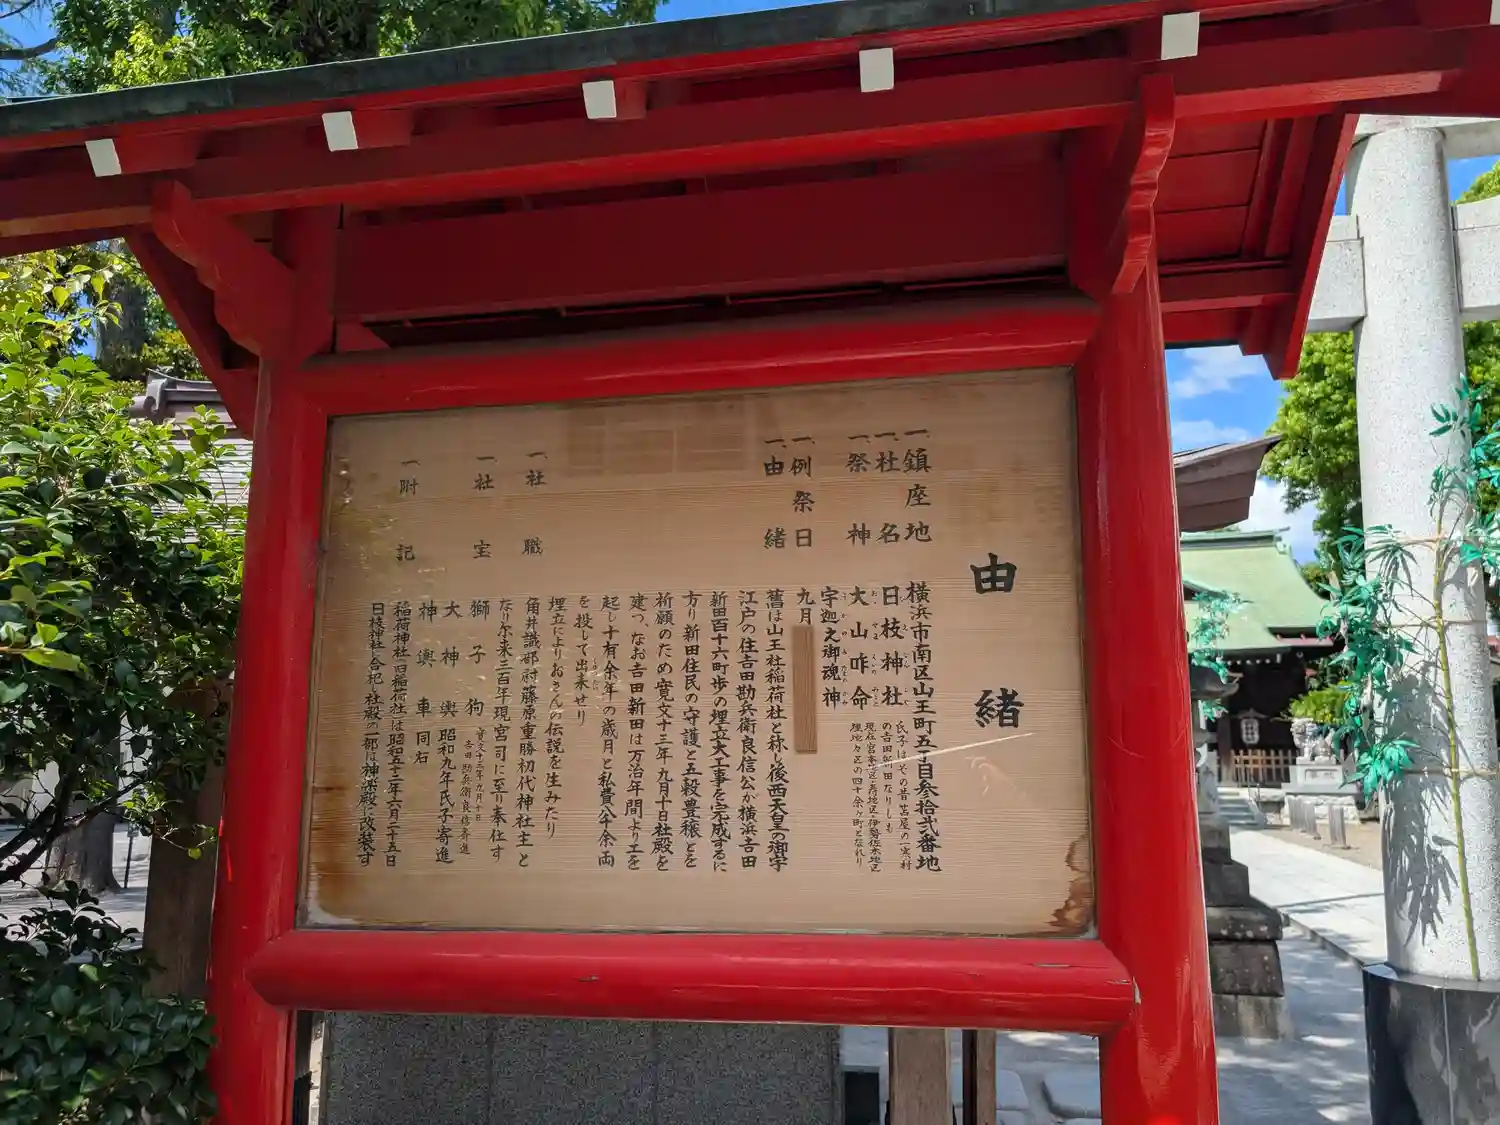 由緒
一、鎮座地 横浜市南区山王町五丁目参拾弐番地
一、社名 日枝神社
氏子はその昔
の吉田新田なりしも
現在宮
埋地七区の四十余ヶ町となれり
一、祭神 大山咋命
おおやまくいのみこと
宇迦之御魂神
一、例祭日 九月
一、由緒 旧は山王社稲荷社と称し後西天皇の御宇
江戸の住吉田勘兵衛良信公が横浜吉田
新田百十六町歩の埋立大工事を完成するに
方り新田住民の守護と五穀豊穣とを
祈願のため寛文十三年九月十日社殿を
建つ、なお吉田新田は万治年間より工を
起し十有余年の歳月と私費八千余両
を投して出来せり
埋立によりおさんの伝説を生みたり
一、社職 角井識部対藤原重勝初代神社主と
なり尓来三百年現宮司に至り奉仕す
一、社宝 獅子狗 寛文十三年九月十日
吉田勘兵衛良信寄進
大神輿 昭和九年氏子寄進
神輿車 同右
一、附記 稲荷神社(旧稲荷社)は昭和五十三年六月二十五日
日枝神社に合祀、社殿の一部は神楽殿に改装す